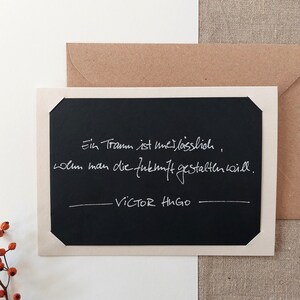 Ein Traum ist unerlässlich,
wenn man die Zukunft gestalten will.
VICTOR HUGO